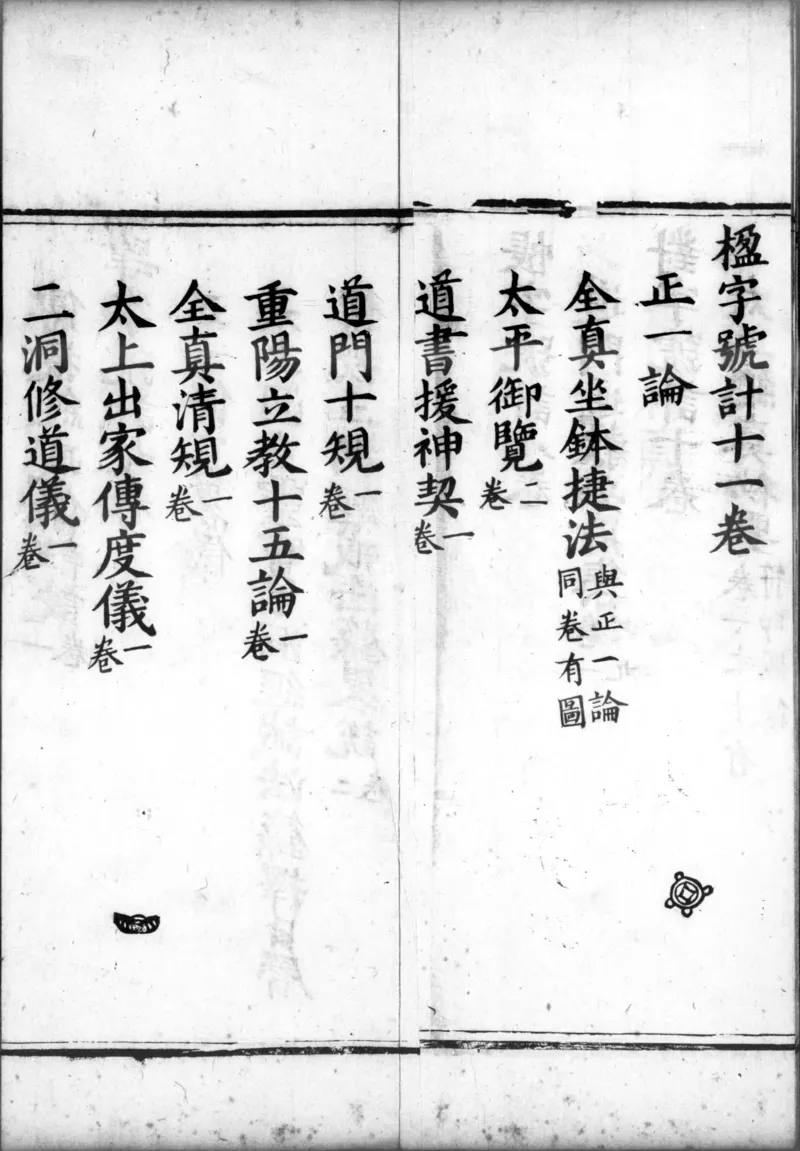 楹字號計十一卷
正一論
全真坐鉢捷法與正一論同卷有圖
太平御覽二卷
道書援神契一卷
道門十規一卷
重陽立教十五論一卷
全真清規一卷
太上出家傳度儀一卷
二洞修道儀一卷